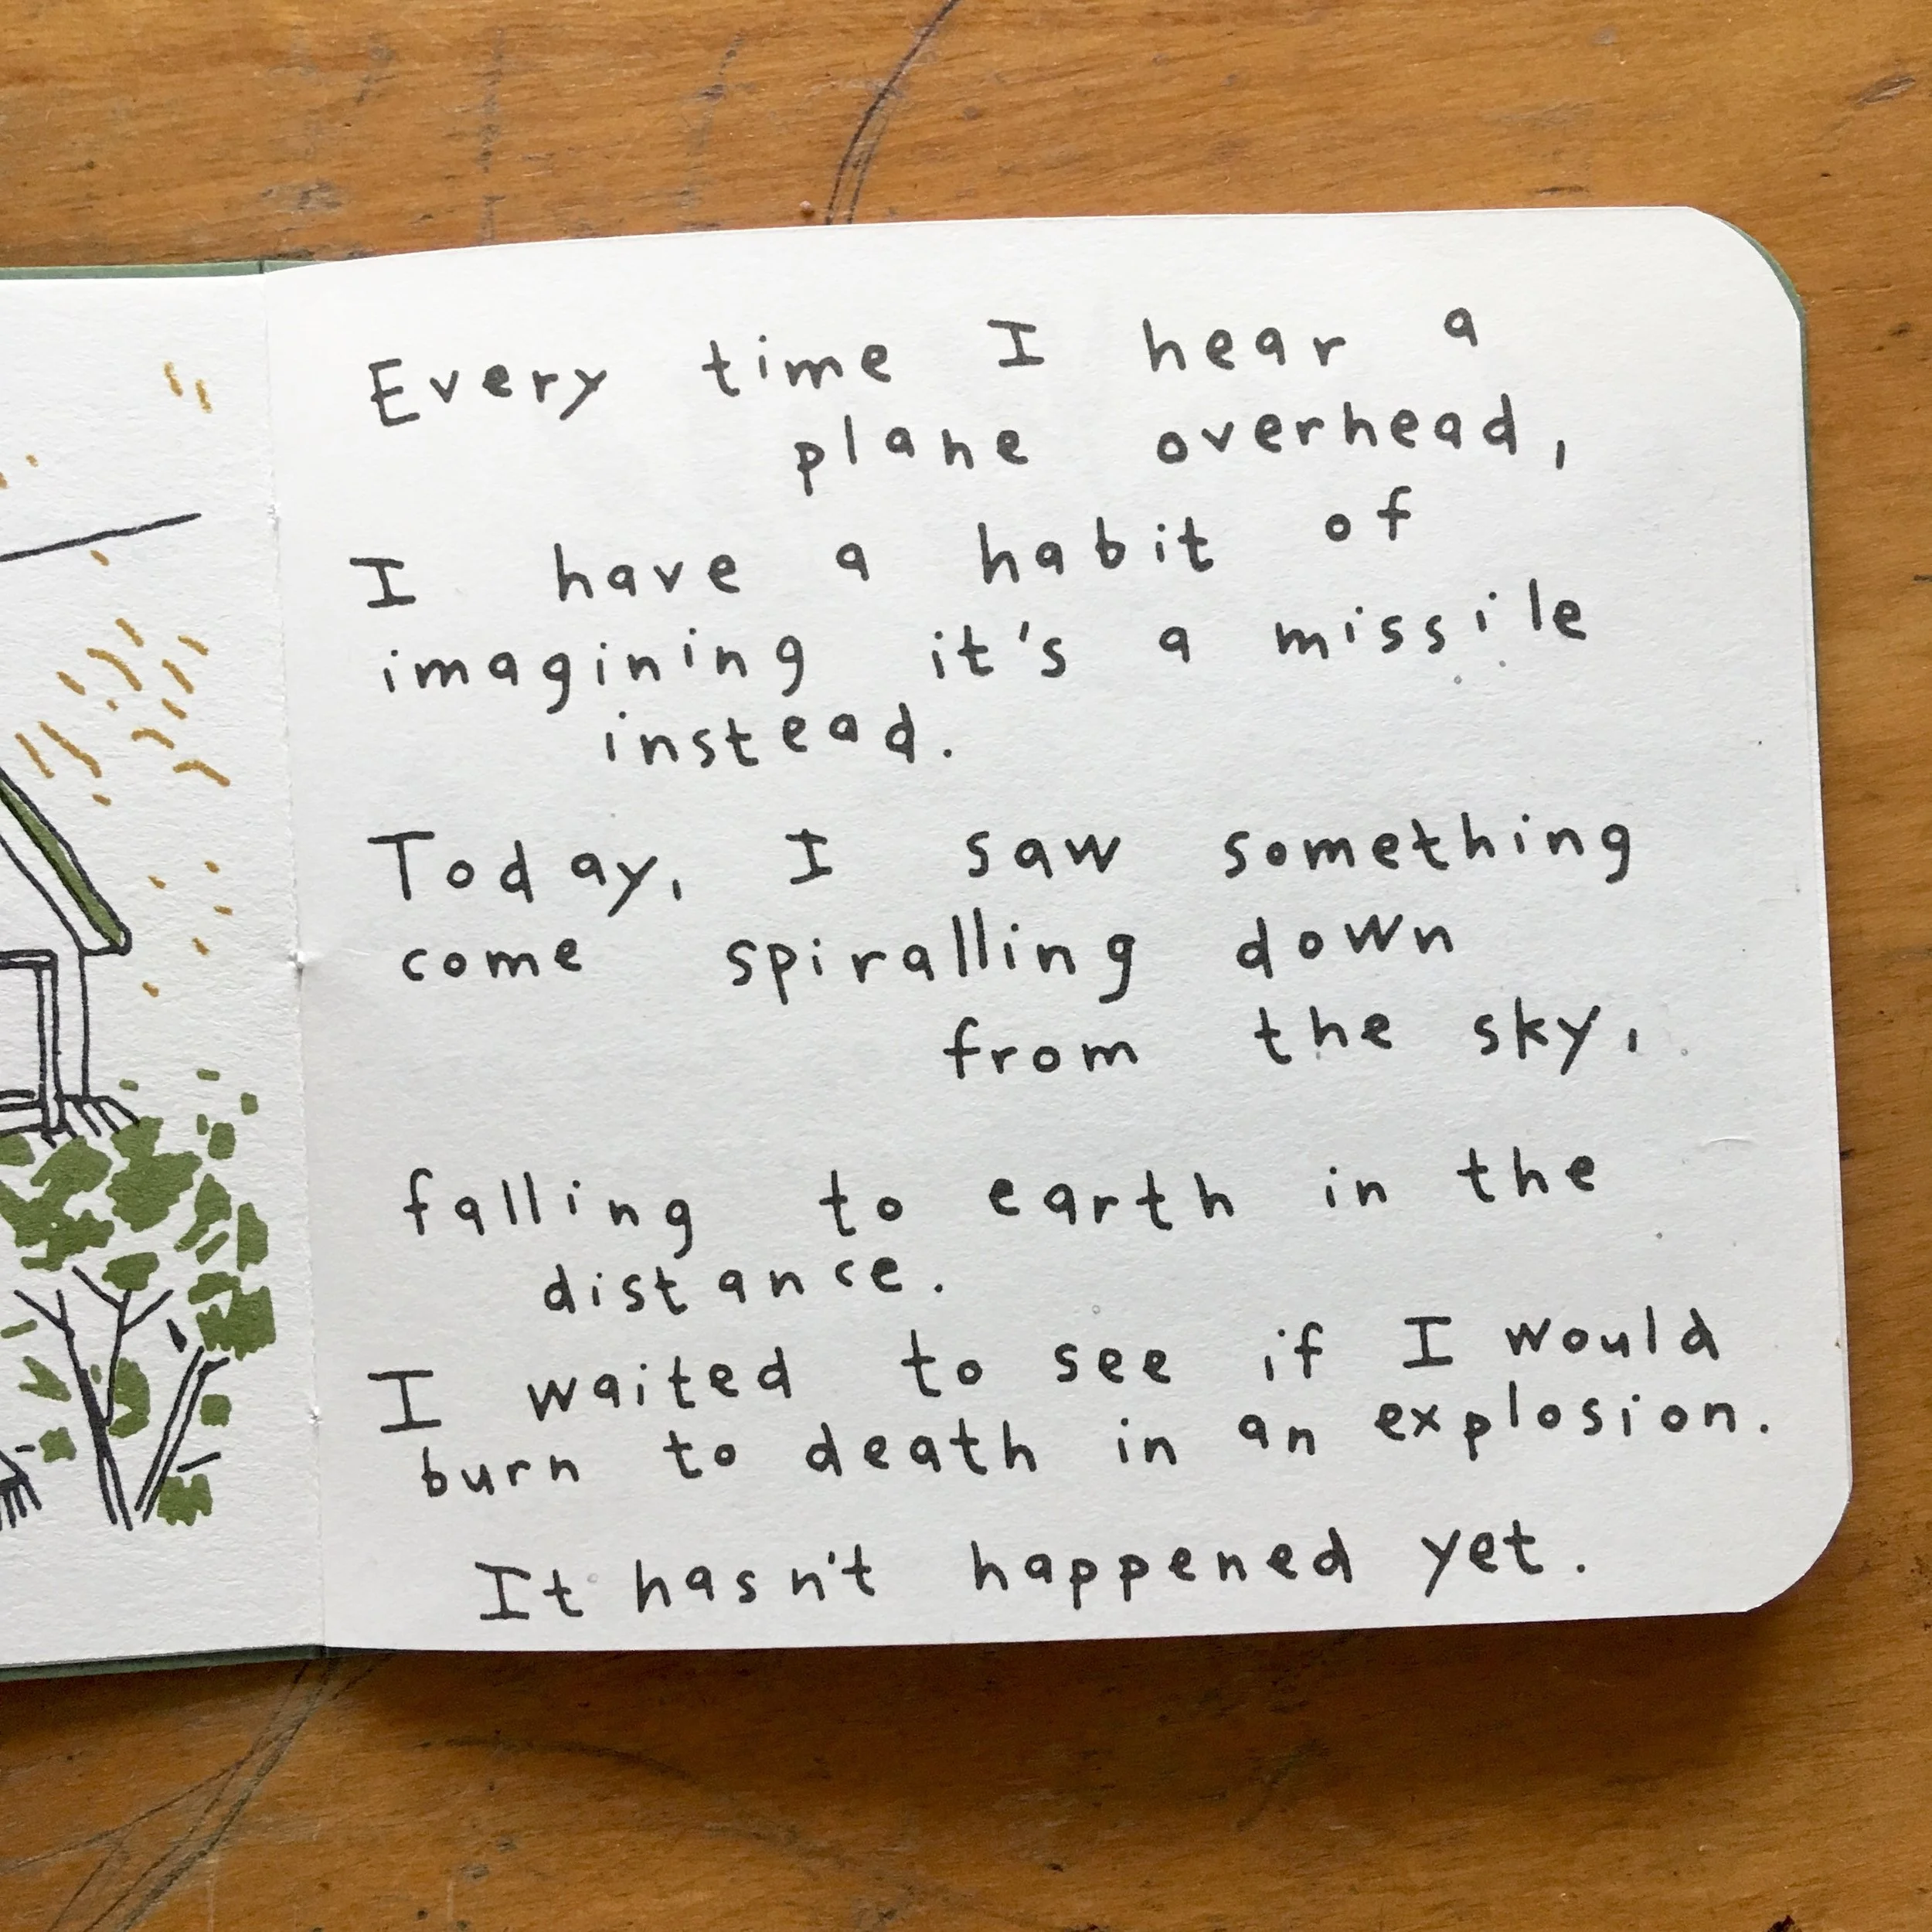 Every time I hear a
plane overhead,
I have a habit of
imagining it's a missile
instead.
Today, I saw something
come spiralling down
from the sky,
falling to earth in the
distance.
I waited to see if I would
burn to death in an explosion.
It hasn't happened yet.